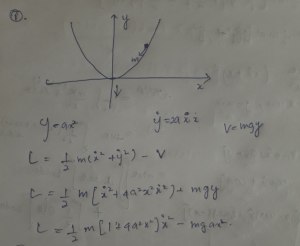 8.
y
m
x
y = ax² ẏ = 2aẋx V = mgy
L = 1/2 m(ẋ² + ẏ²) - V
L = 1/2 m[ẋ² + 4a²x²ẋ²] + mgy
L = 1/2 m[1 + 4a²x²]ẋ² - mgax².